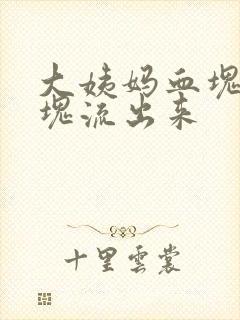 大姨妈血塊
塊流出来
十里雲裳